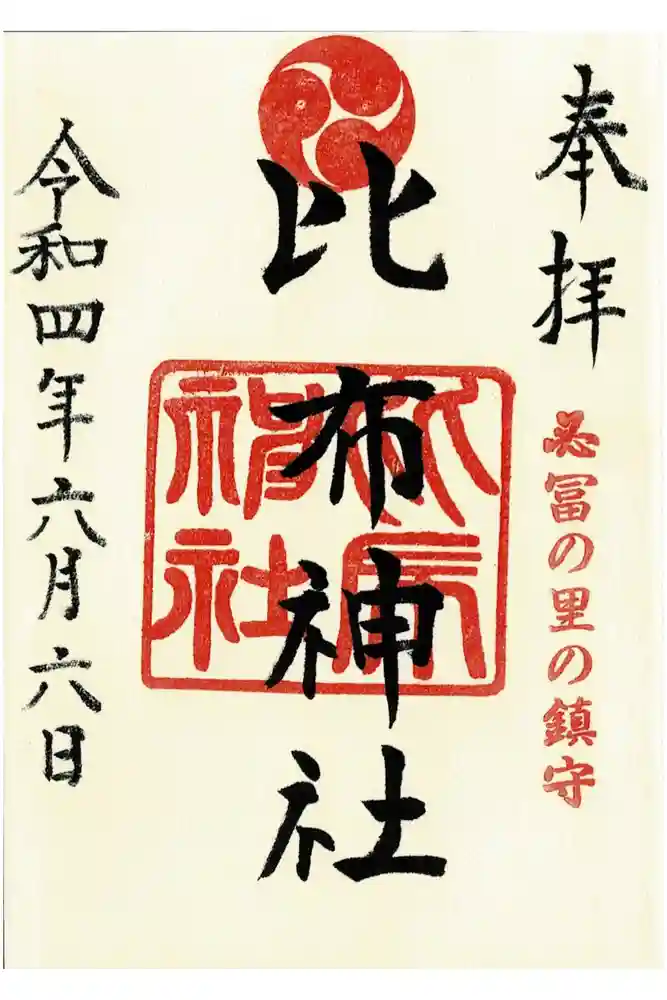 奉拝
必冨の里の鎮守
比布神社
比布
神社
令和四年六月六日